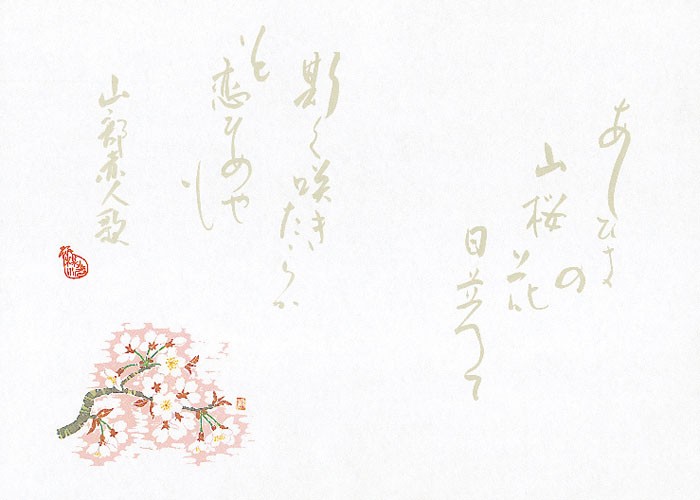 あしひきの
山桜花
日並べて
斯く咲きたらば
いと恋ひめやも
山部赤人歌